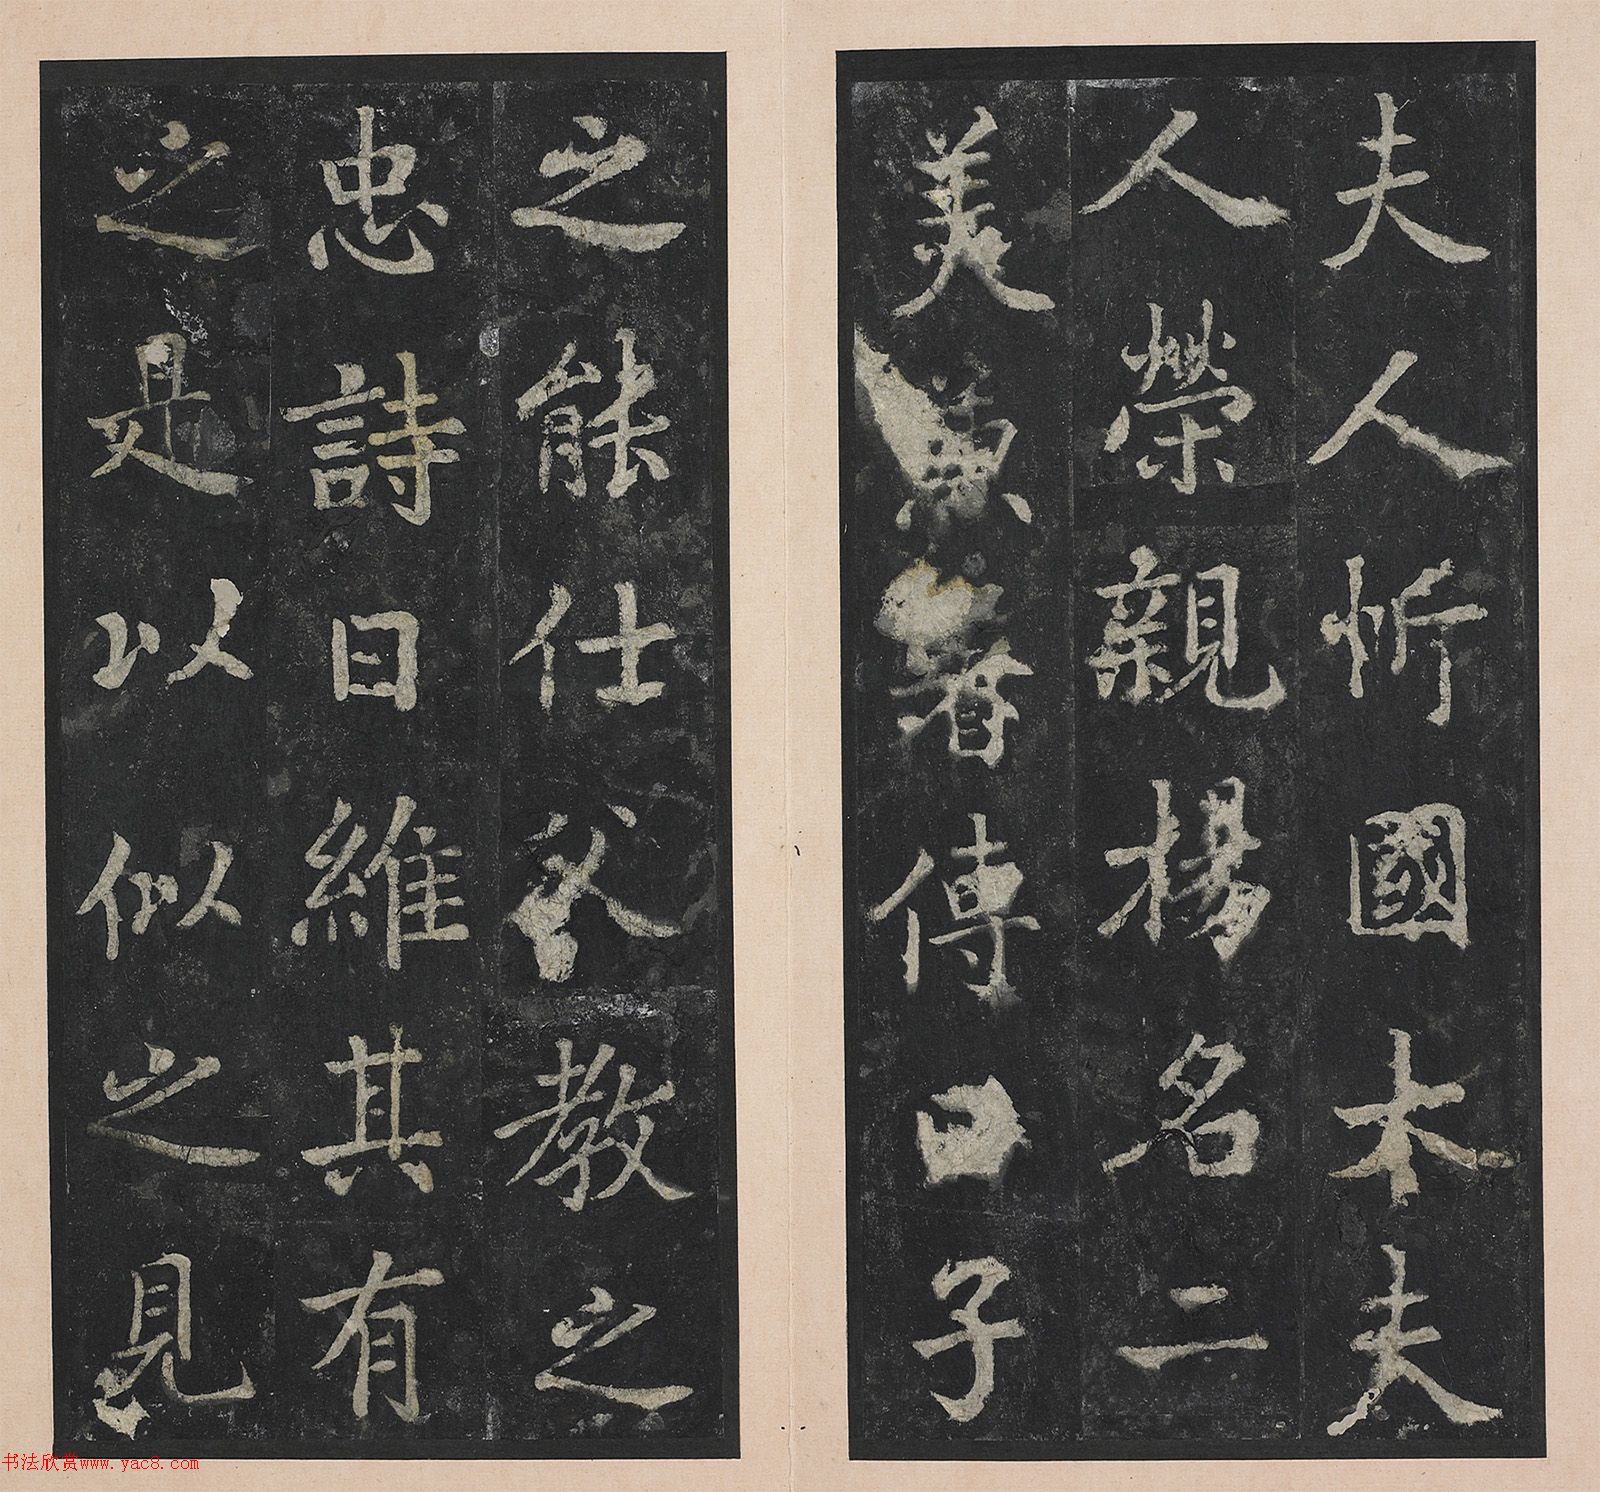 夫人忻國太夫
人榮親楊名二
美兼著傳曰子
之能仕父教之
忠詩曰維其有
之是以似之見
书法欣赏www.yac8.com